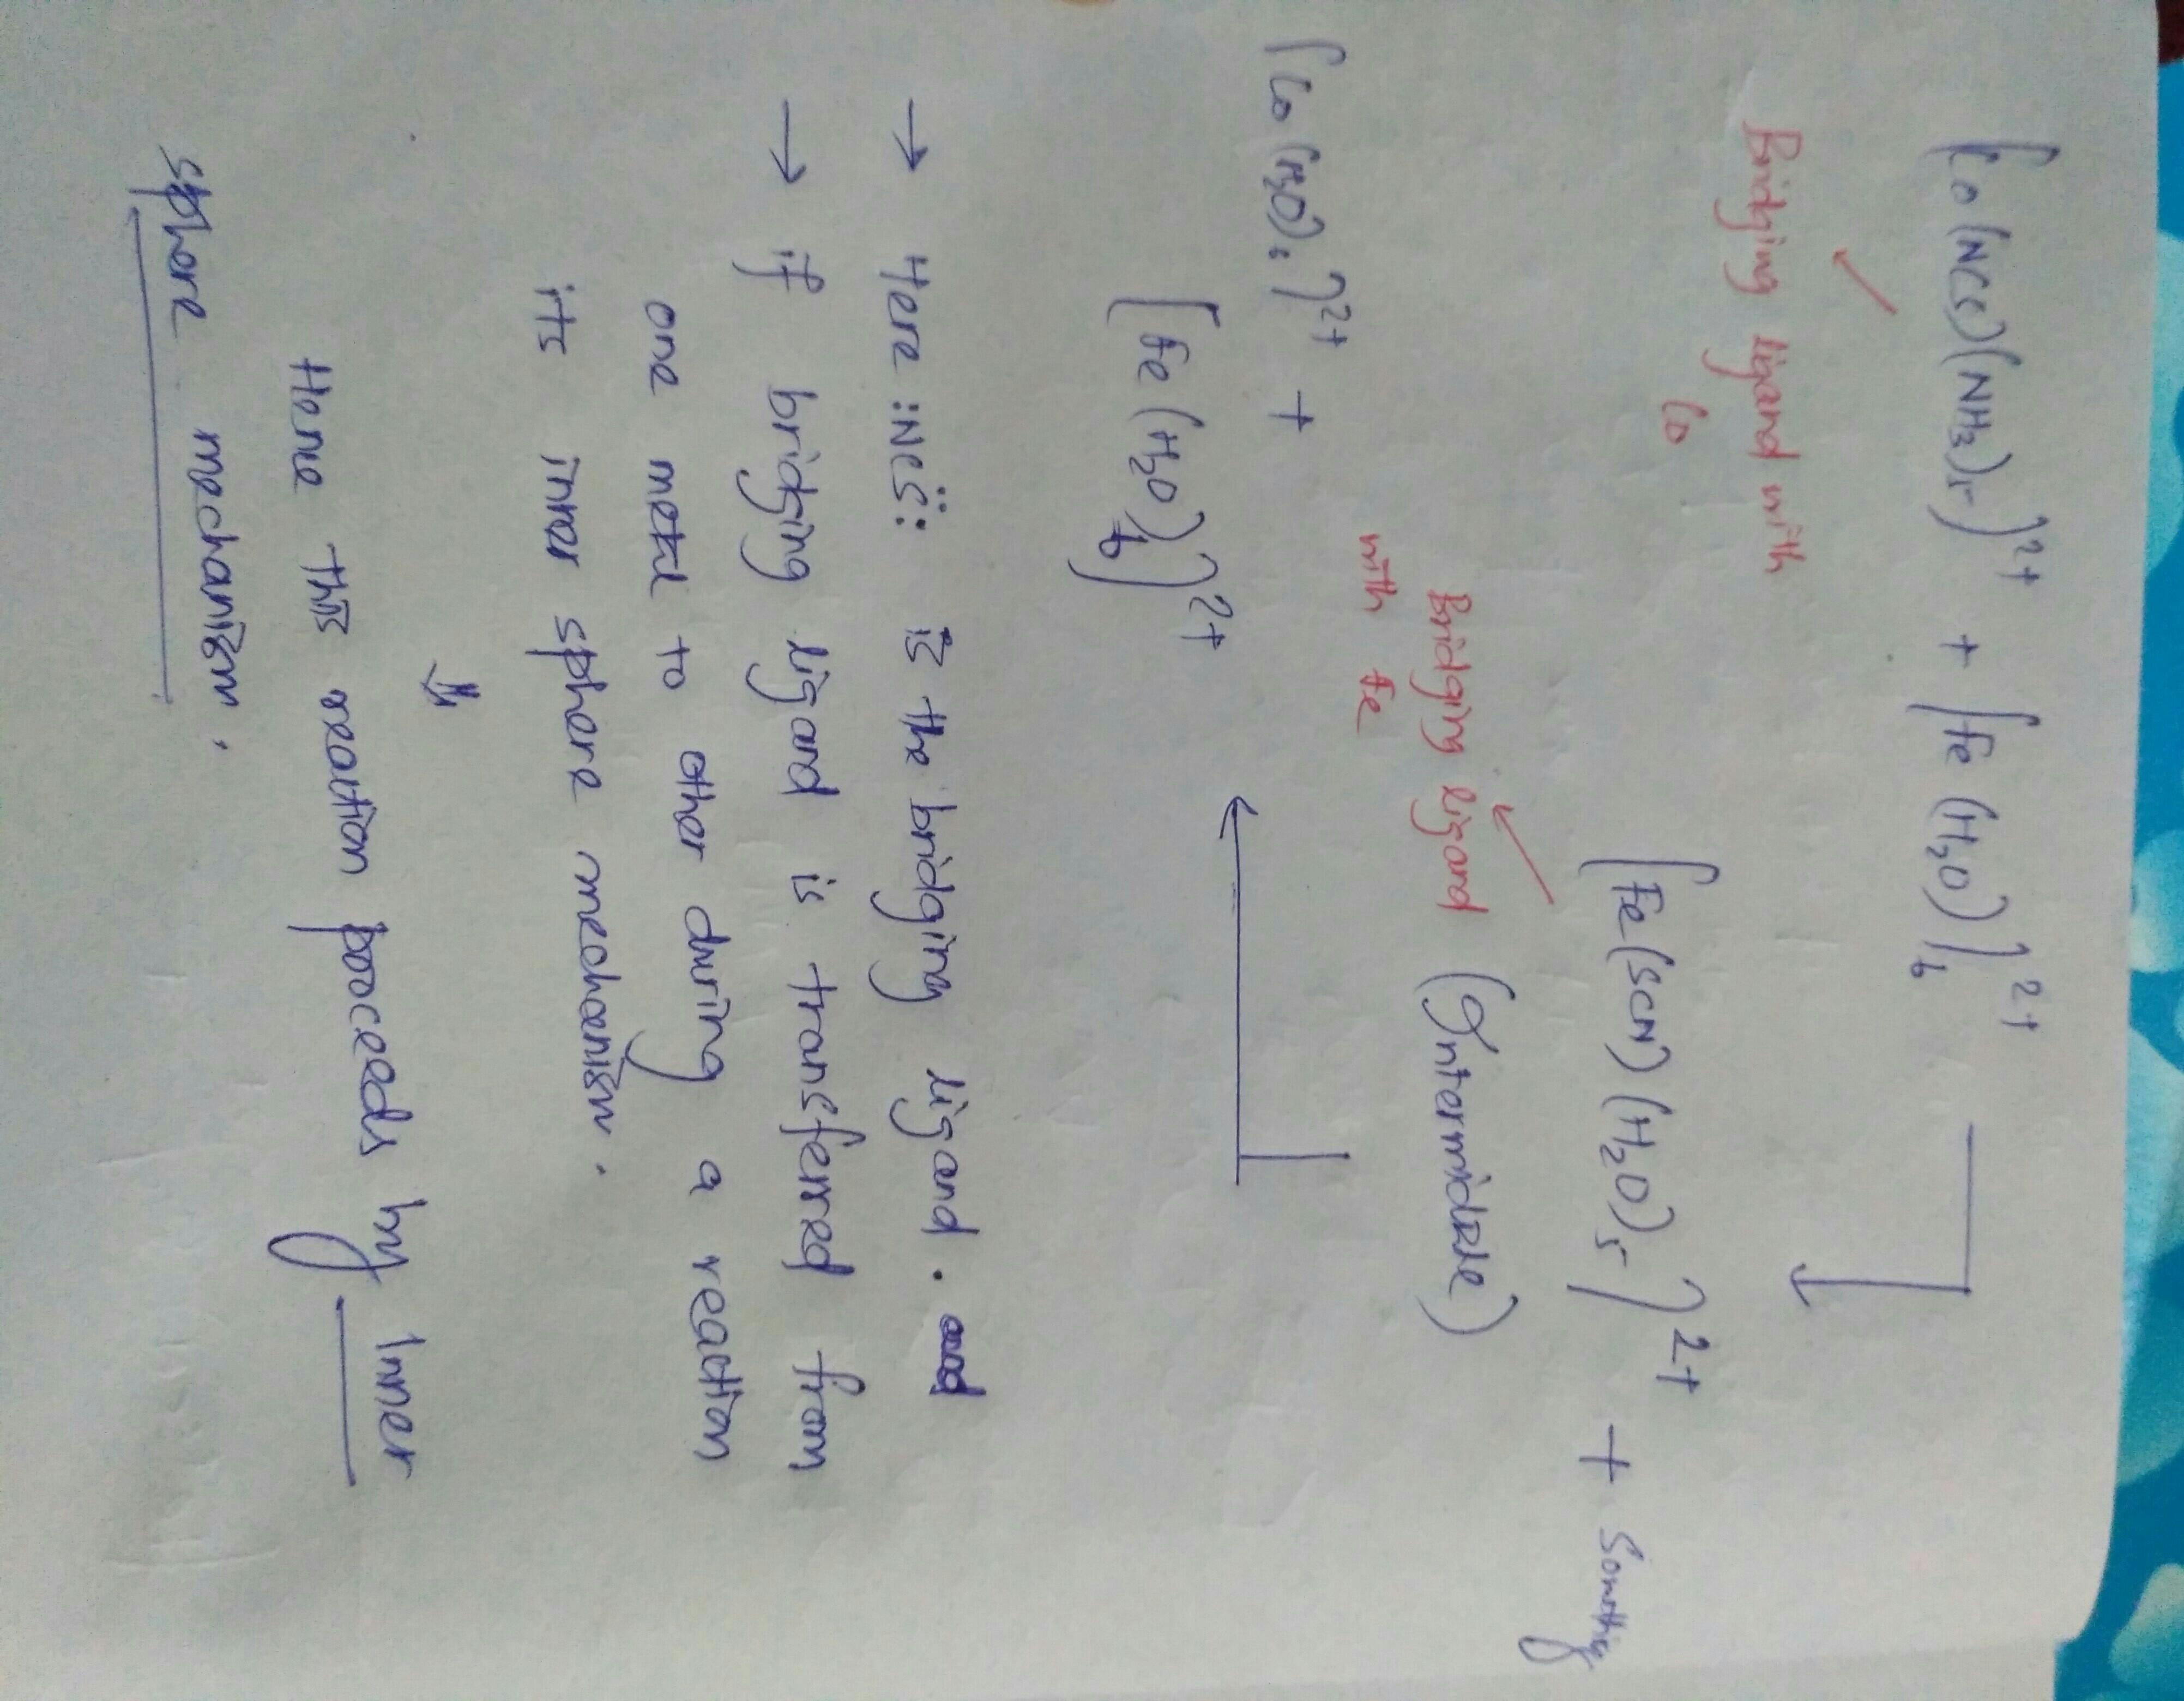 [Co(NCS)(NH3)5]2+ + [Fe(H2O)6]2+
Bridging ligand with
Co
[Fe(SCN)(H2O)5]2+ + Somthing
Bridging ligand (Intermidate)
with Fe
[Co(H2O)6]2+ +
[Fe(H2O)6]2+
→ Here :NCS̈: is the bridging ligand. and
→ if bridging ligand is transferred from
one metal to other during a reaction
its inner sphere mechanism.
⇓
Hence this reaction proceeds by Inner
sphere mechanism.